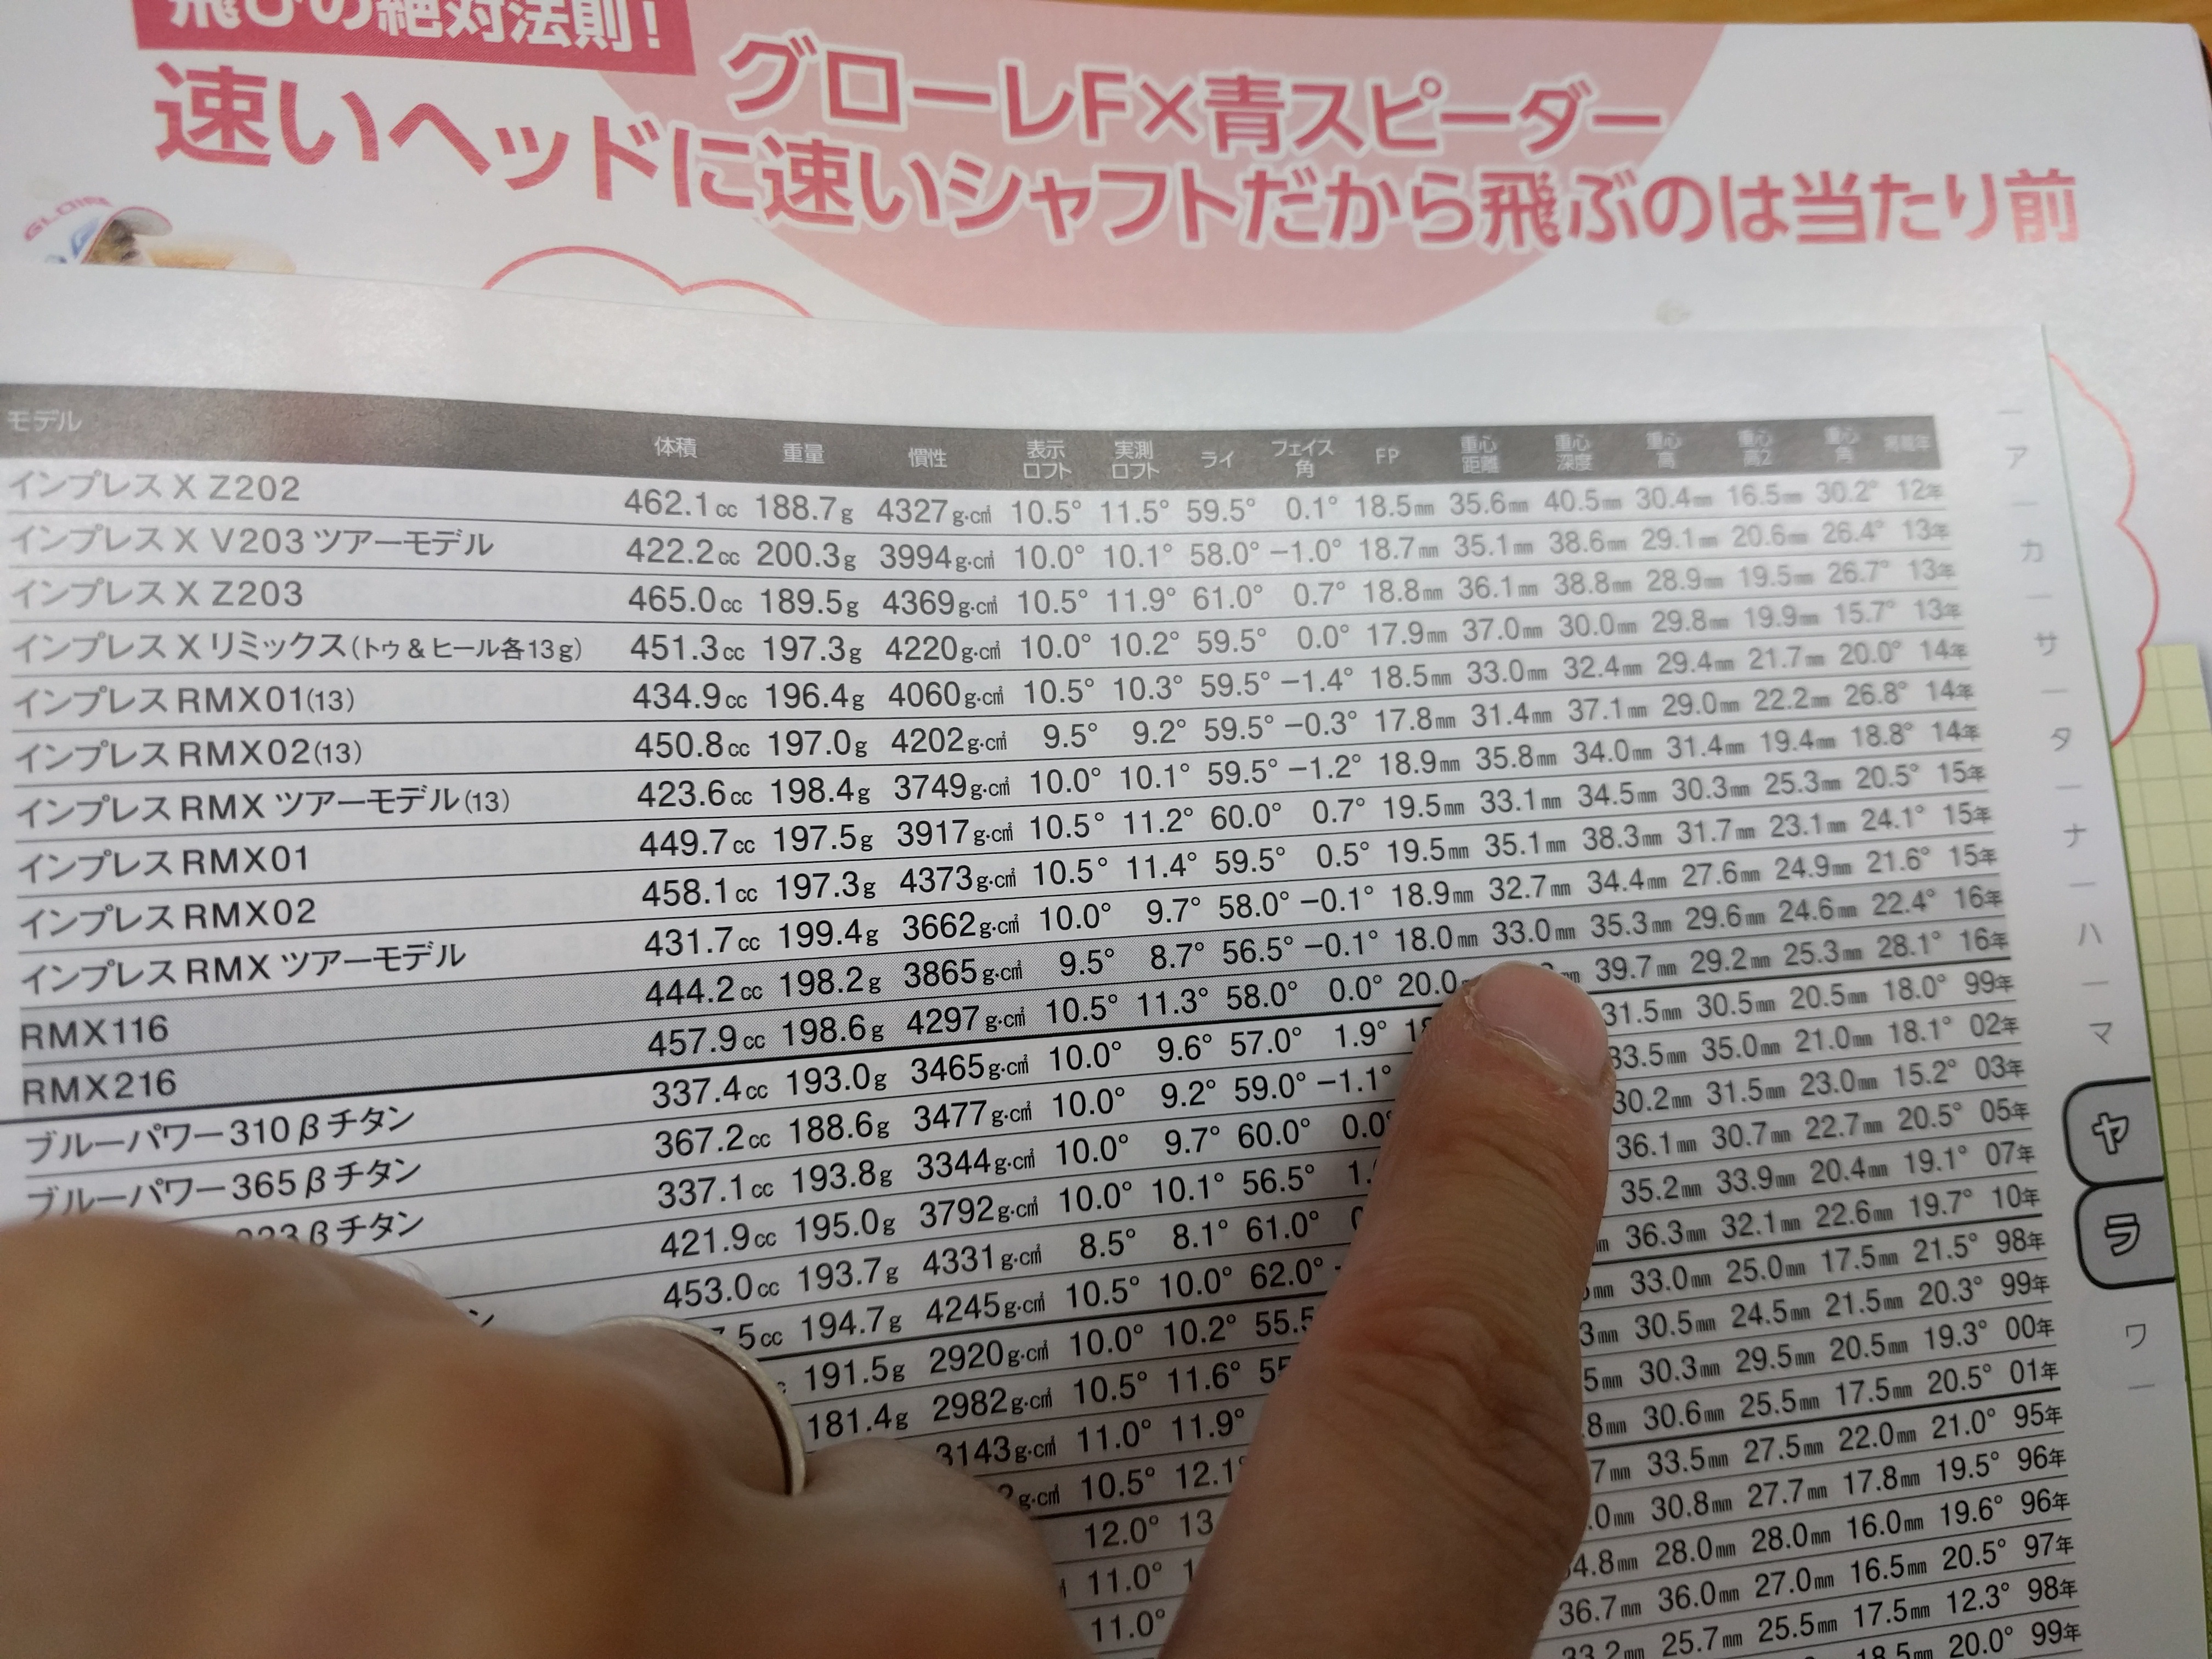 飛びの絶対法則!
グローレF×青スピーダー
速いヘッドに速いシャフトだから飛ぶのは当たり前
モデル 体積 重量 慣性 表示ロフト 実測ロフト ライ フェイス角 FP 重心距離 重心深度 重心高 重心高2 重心角 掲載年
インプレス X Z202 462.1cc 188.7g 4327g·c㎡ 10.5° 11.5° 59.5° 0.1° 18.5㎜ 35.6㎜ 40.5㎜ 30.4㎜ 16.5㎜ 30.2° 12年
インプレス X V203 ツアーモデル 422.2cc 200.3g 3994g·c㎡ 10.0° 10.1° 58.0° −1.0° 18.7㎜ 35.1㎜ 38.6㎜ 29.1㎜ 20.6㎜ 26.4° 13年
インプレス X Z203 465.0cc 189.5g 4369g·c㎡ 10.5° 11.9° 61.0° 0.7° 18.8㎜ 36.1㎜ 38.8㎜ 28.9㎜ 19.5㎜ 26.7° 13年
インプレス X リミックス(トゥ & ヒール各13g) 451.3cc 197.3g 4220g·c㎡ 10.0° 10.2° 59.5° 0.0° 17.9㎜ 37.0㎜ 30.0㎜ 29.8㎜ 19.9㎜ 15.7° 13年
インプレス RMX01(13) 434.9cc 196.4g 4060g·c㎡ 10.5° 10.3° 59.5° −1.4° 18.5㎜ 33.0㎜ 32.4㎜ 29.4㎜ 21.7㎜ 20.0° 14年
インプレス RMX02(13) 450.8cc 197.0g 4202g·c㎡ 9.5° 9.2° 59.5° −0.3° 17.8㎜ 31.4㎜ 37.1㎜ 29.0㎜ 22.2㎜ 26.8° 14年
インプレス RMX ツアーモデル(13) 423.6cc 198.4g 3749g·c㎡ 10.0° 10.1° 59.5° −1.2° 18.9㎜ 35.8㎜ 34.0㎜ 31.4㎜ 19.4㎜ 18.8° 14年
インプレス RMX01 449.7cc 197.5g 3917g·c㎡ 10.5° 11.2° 60.0° 0.7° 19.5㎜ 33.1㎜ 34.5㎜ 30.3㎜ 25.3㎜ 20.5° 15年
インプレス RMX02 458.1cc 197.3g 4373g·c㎡ 10.5° 11.4° 59.5° 0.5° 19.5㎜ 35.1㎜ 38.3㎜ 31.7㎜ 23.1㎜ 24.1° 15年
インプレス RMX ツアーモデル 431.7cc 199.4g 3662g·c㎡ 10.0° 9.7° 58.0° −0.1° 18.9㎜ 32.7㎜ 34.4㎜ 27.6㎜ 24.9㎜ 21.6° 15年
RMX116 444.2cc 198.2g 3865g·c㎡ 9.5° 8.7° 56.5° −0.1° 18.0㎜ 33.0㎜ 35.3㎜ 29.6㎜ 24.6㎜ 22.4° 16年
RMX216 457.9cc 198.6g 4297g·c㎡ 10.5° 11.3° 58.0° 0.0° 20.0 39.7㎜ 29.2㎜ 25.3㎜ 28.1° 16年
ブルーパワー310 β チタン 337.4cc 193.0g 3465g·c㎡ 10.0° 9.6° 57.0° 1.9° 31.5㎜ 30.5㎜ 20.5㎜ 18.0° 99年
ブルーパワー365 β チタン 367.2cc 188.6g 3477g·c㎡ 10.0° 9.2° 59.0° −1.1° 33.5㎜ 35.0㎜ 21.0㎜ 18.1° 02年
β チタン 337.1cc 193.8g 3344g·c㎡ 10.0° 9.7° 60.0° 0.0° 30.2㎜ 31.5㎜ 23.0㎜ 15.2° 03年
421.9cc 195.0g 3792g·c㎡ 10.0° 10.1° 56.5° 36.1㎜ 30.7㎜ 22.7㎜ 20.5° 05年
453.0cc 193.7g 4331g·c㎡ 8.5° 8.1° 61.0° 35.2㎜ 33.9㎜ 20.4㎜ 19.1° 07年
194.7g 4245g·c㎡ 10.5° 10.0° 62.0° 36.3㎜ 32.1㎜ 22.6㎜ 19.7° 10年
191.5g 2920g·c㎡ 10.0° 10.2° 55.5 33.0㎜ 25.0㎜ 17.5㎜ 21.5° 98年
181.4g 2982g·c㎡ 10.5° 11.6° 30.5㎜ 24.5㎜ 21.5㎜ 20.3° 99年
3143g·c㎡ 11.0° 11.9° 30.3㎜ 29.5㎜ 20.5㎜ 19.3° 00年
10.5° 12.1° 30.6㎜ 25.5㎜ 17.5㎜ 20.5° 01年
12.0° 33.5㎜ 27.5㎜ 22.0㎜ 21.0° 95年
11.0° 30.8㎜ 27.7㎜ 17.8㎜ 19.5° 96年
11.0° 28.0㎜ 28.0㎜ 16.0㎜ 19.6° 96年
36.7㎜ 36.0㎜ 27.0㎜ 16.5㎜ 20.5° 97年
25.7㎜ 25.5㎜ 17.5㎜ 12.3° 98年
18.5㎜ 20.0° 99年
ア
カ
サ
タ
ナ
ハ
マ
ヤ
ラ
ワ